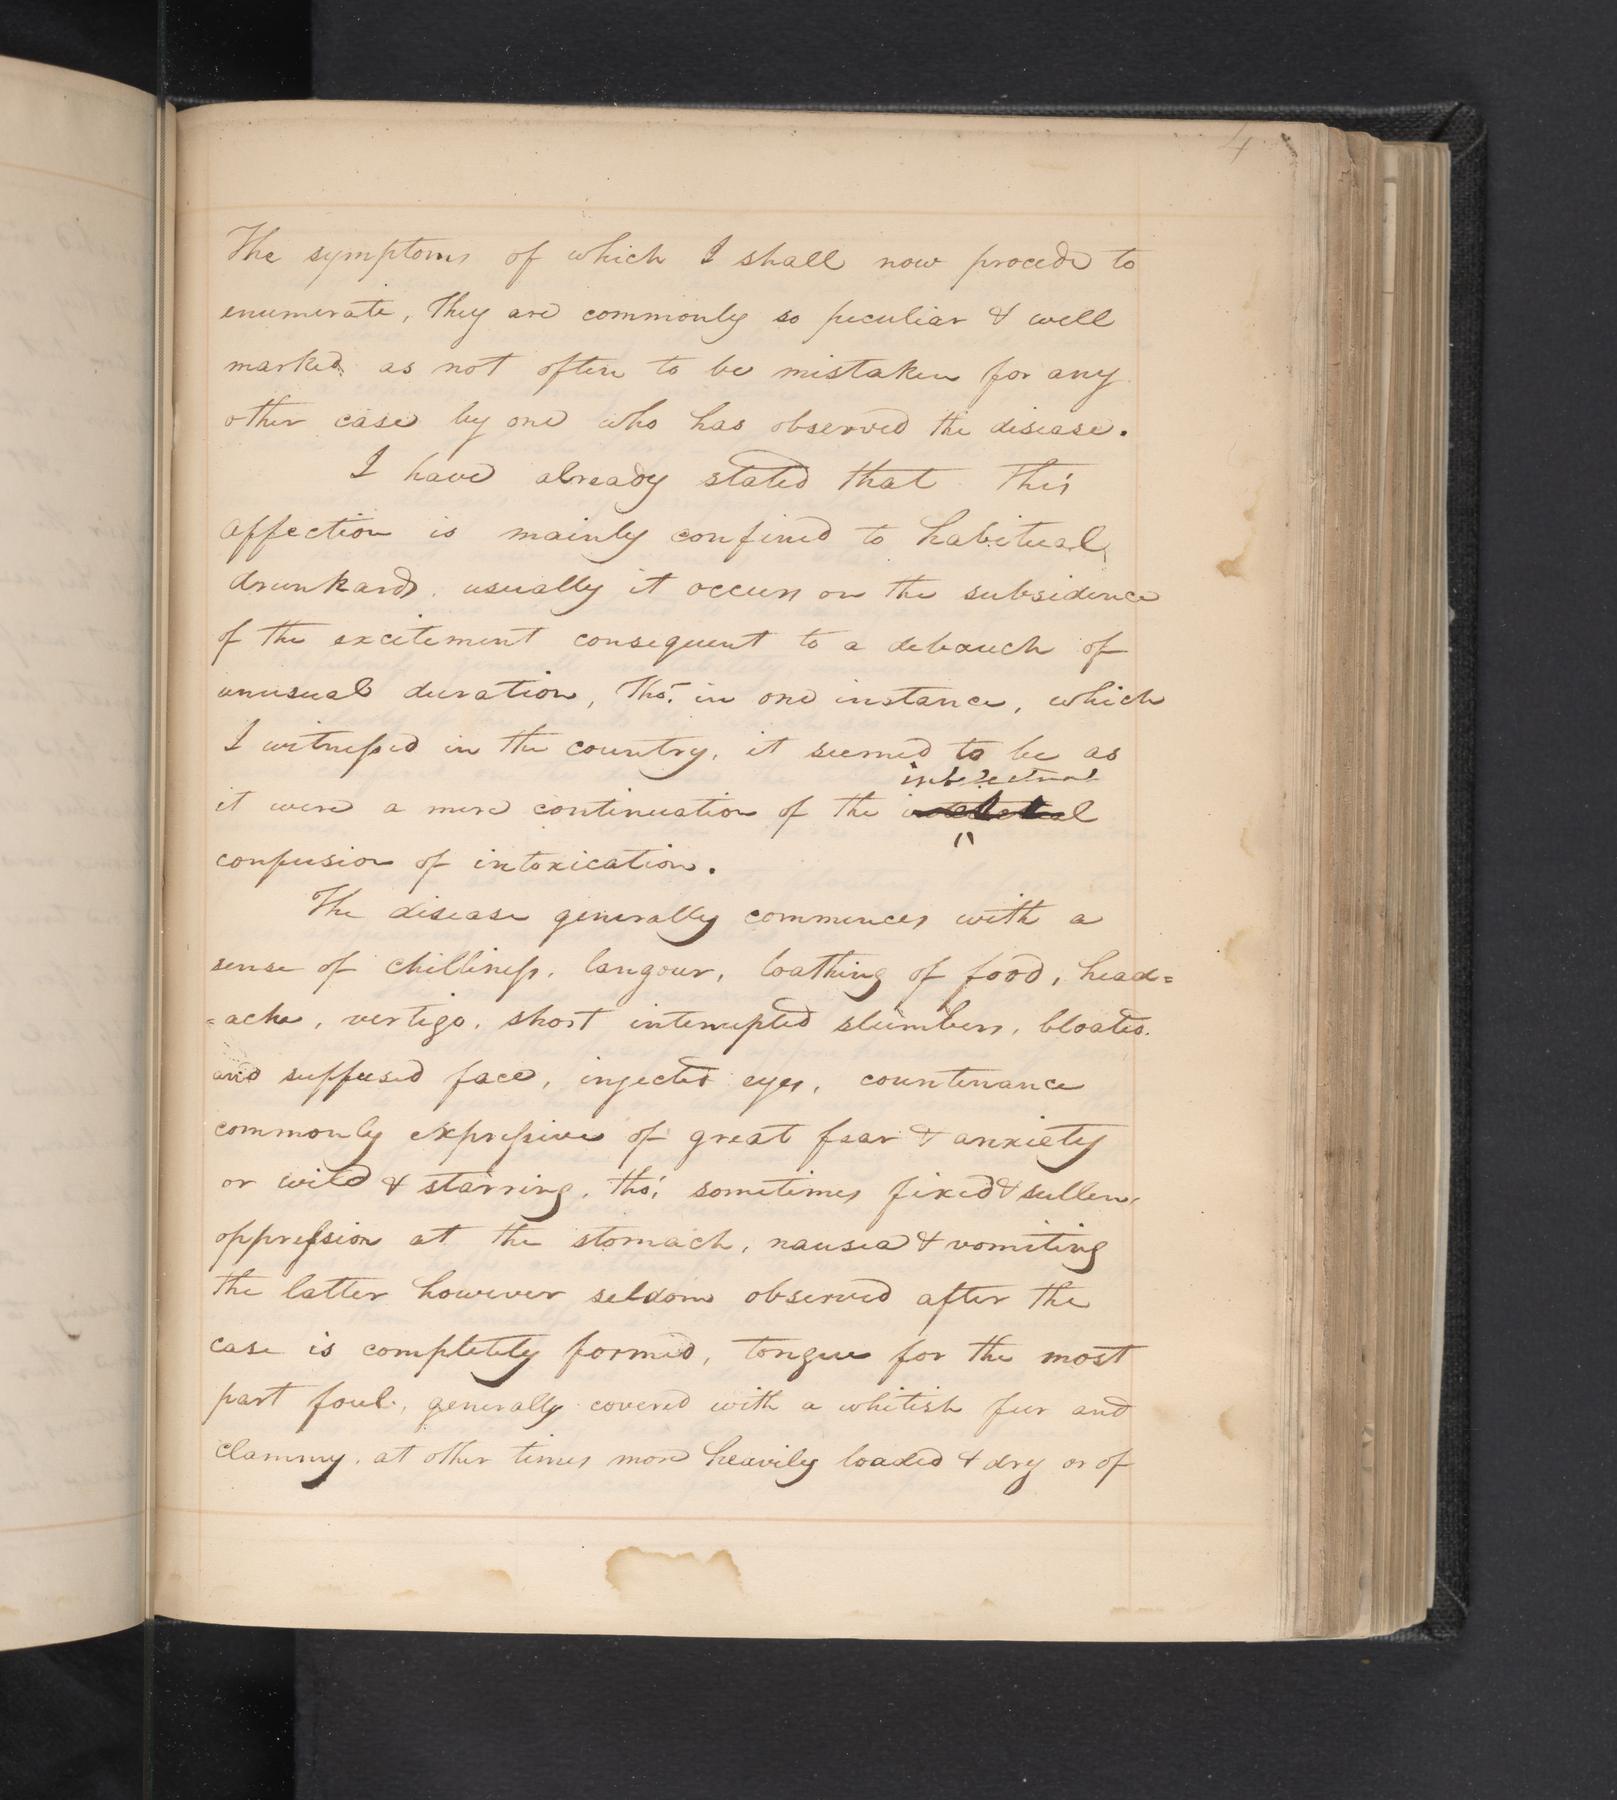 4
The symptoms of which I shall now procede to
enumerate, They are commonly so peculiar & well
marked as not often to be mistaken for any
other case by one who has observed the disease.
I have already stated that this
affection is mainly confined to habitual
drunkards. usually it occurs on the subsidence
of the excitement consequent to a debauch of
unusual duration, tho'. in one instance, which
I witnessed in the country, it seemed to be as
intellectual
it were a mere continuation of the
confusion of intoxication.
The disease generally commences with a
sense of chilliness, langour, loathing of food, head=
=ache, vertigo, short interrupted slumbers, bloated
and suffused face, injected eyes, countenance
commonly expressive of great fear & anxiety
or wild & starring, tho', sometimes fixed & sullen,
oppression at the stomach, nausea & vomiting
the latter however seldom observed after the
case is completely formed, tongue for the most
part foul, generally covered with a whitish fur and
clammy, at other times more heavily loaded & dry or of